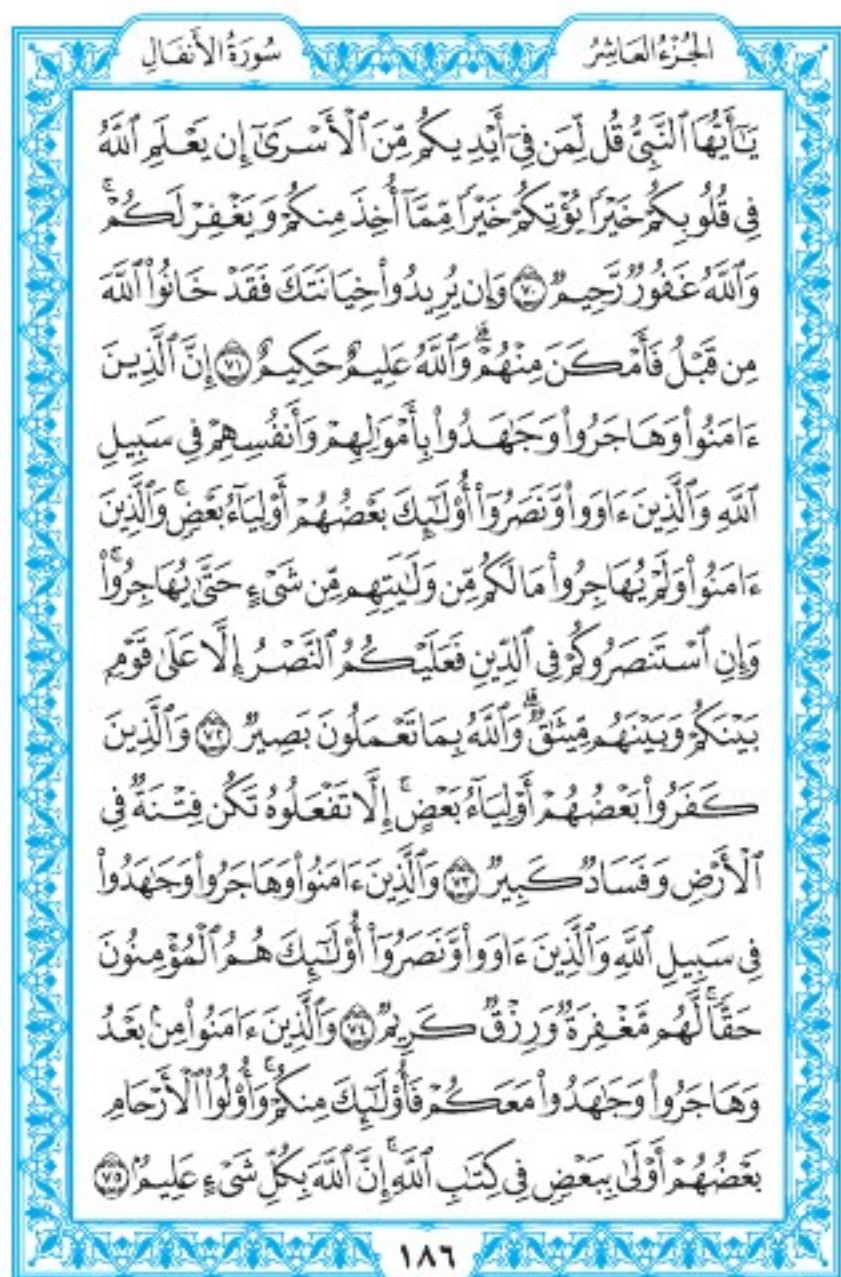 الجُزْءُ العَاشِرُ
سُورَةُ الأَنفَالِ
يَـٰٓأَيُّهَا ٱلنَّبِىُّ قُل لِّمَن فِىٓ أَيْدِيكُم مِّنَ ٱلْأَسْرَىٰٓ إِن يَعْلَمِ ٱللَّهُ
فِى قُلُوبِكُمْ خَيْرًا يُؤْتِكُمْ خَيْرًا مِّمَّآ أُخِذَ مِنكُمْ وَيَغْفِرْ لَكُمْ ۚ
وَٱللَّهُ غَفُورٌ رَّحِيمٌ ۝٧٠ وَإِن يُرِيدُوا۟ خِيَانَتَكَ فَقَدْ خَانُوا۟ ٱللَّهَ
مِن قَبْلُ فَأَمْكَنَ مِنْهُمْ ۗ وَٱللَّهُ عَلِيمٌ حَكِيمٌ ۝٧١ إِنَّ ٱلَّذِينَ
ءَامَنُوا۟ وَهَاجَرُوا۟ وَجَـٰهَدُوا۟ بِأَمْوَٰلِهِمْ وَأَنفُسِهِمْ فِى سَبِيلِ
ٱللَّهِ وَٱلَّذِينَ ءَاوَوا۟ وَّنَصَرُوٓا۟ أُو۟لَـٰٓئِكَ بَعْضُهُمْ أَوْلِيَآءُ بَعْضٍ ۚ وَٱلَّذِينَ
ءَامَنُوا۟ وَلَمْ يُهَاجِرُوا۟ مَا لَكُم مِّن وَلَـٰيَتِهِم مِّن شَىْءٍ حَتَّىٰ يُهَاجِرُوا۟ ۚ
وَإِنِ ٱسْتَنصَرُوكُمْ فِى ٱلدِّينِ فَعَلَيْكُمُ ٱلنَّصْرُ إِلَّا عَلَىٰ قَوْمٍۭ
بَيْنَكُمْ وَبَيْنَهُم مِّيثَـٰقٌ ۗ وَٱللَّهُ بِمَا تَعْمَلُونَ بَصِيرٌ ۝٧٢ وَٱلَّذِينَ
كَفَرُوا۟ بَعْضُهُمْ أَوْلِيَآءُ بَعْضٍ ۚ إِلَّا تَفْعَلُوهُ تَكُن فِتْنَةٌ فِى
ٱلْأَرْضِ وَفَسَادٌ كَبِيرٌ ۝٧٣ وَٱلَّذِينَ ءَامَنُوا۟ وَهَاجَرُوا۟ وَجَـٰهَدُوا۟
فِى سَبِيلِ ٱللَّهِ وَٱلَّذِينَ ءَاوَوا۟ وَّنَصَرُوٓا۟ أُو۟لَـٰٓئِكَ هُمُ ٱلْمُؤْمِنُونَ
حَقًّا ۚ لَّهُم مَّغْفِرَةٌ وَرِزْقٌ كَرِيمٌ ۝٧٤ وَٱلَّذِينَ ءَامَنُوا۟ مِنۢ بَعْدُ
وَهَاجَرُوا۟ وَجَـٰهَدُوا۟ مَعَكُمْ فَأُو۟لَـٰٓئِكَ مِنكُمْ ۚ وَأُو۟لُوا۟ ٱلْأَرْحَامِ
بَعْضُهُمْ أَوْلَىٰ بِبَعْضٍ فِى كِتَـٰبِ ٱللَّهِ ۗ إِنَّ ٱللَّهَ بِكُلِّ شَىْءٍ عَلِيمٌۢ ۝٧٥
١٨٦